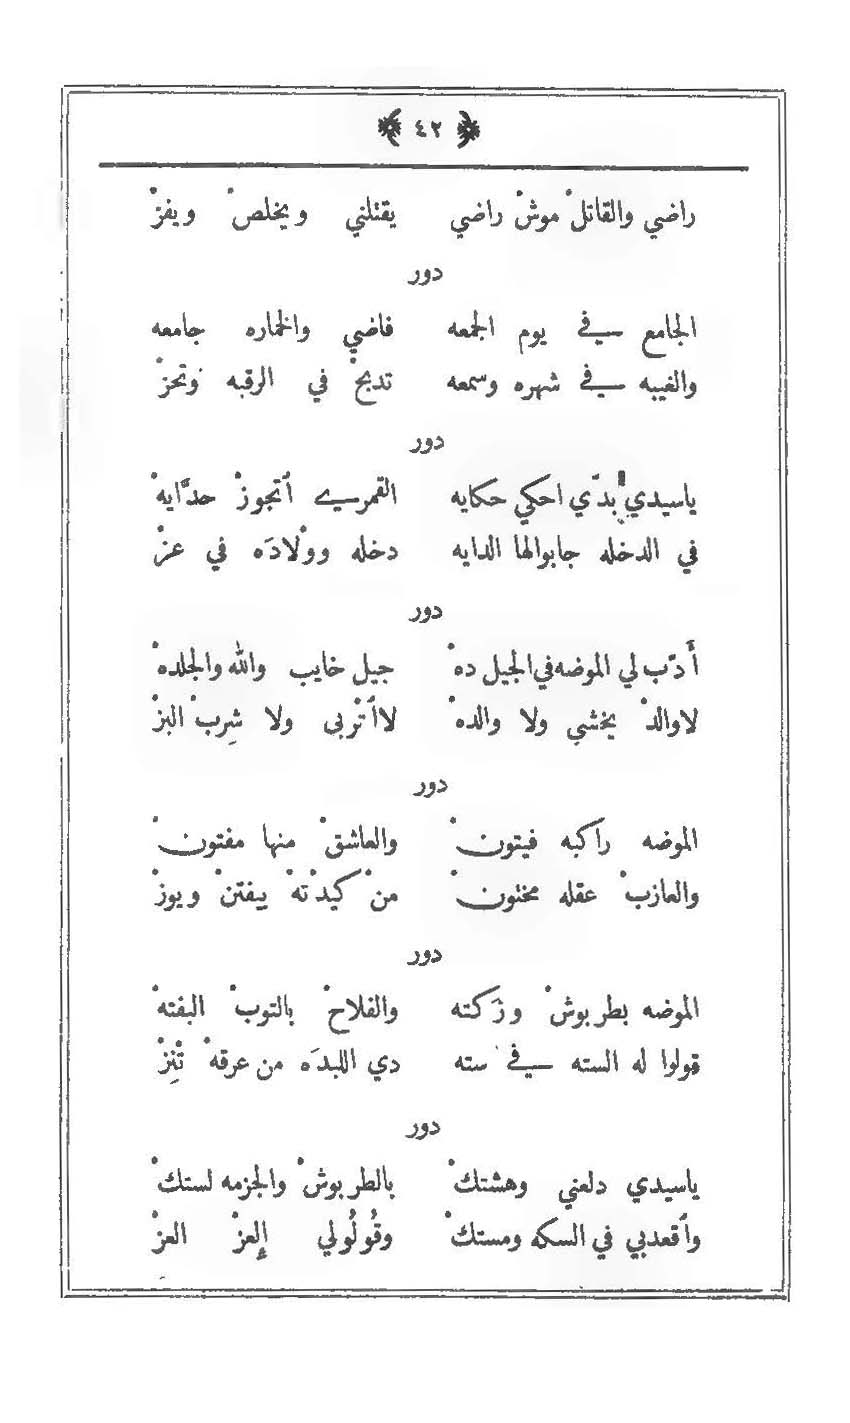 ﴿ ٤٢ ﴾
راضي والقاتلْ موشْ راضي يقتلني ويخلصْ ويفزْ
دور
الجامع في يوم الجمعه فاضي والخماره جامعه
والغيبه في شهره وسمعه تدبحْ في الرقبه وتحزْ
دور
ياسيدي بدّي احكي حكايه القمري أتجوزْ حدَّايهْ
في الدخله جابوالها الدايه دخله وولْادَه في عزْ
دور
أَدّب لي الموضه في الجيل دهْ جيل خايب والله والجلدهْ
لاوالدْ يخشي ولا والدهْ لاأتْربى ولا شِربْ البزْ
دور
الموضه راكبه فيتونْ والعاشقْ منها مفتونْ
والعازبْ عقله مختونْ منْ كيدْتهْ ييفتنْ ويوزْ
دور
الموضه بطربوشْ وزَكته والفلاحْ بالتوبْ البفتهْ
قولوا له السته في سته دي اللبدَه من عرقهْ تْنِزْ
دور
ياسيدي دلعني وهشتكْ بالطربوشْ والجزمه لستكْ
وأقعدبي في السكه ومستكْ وقُولُولي إِلعزْ العزْ